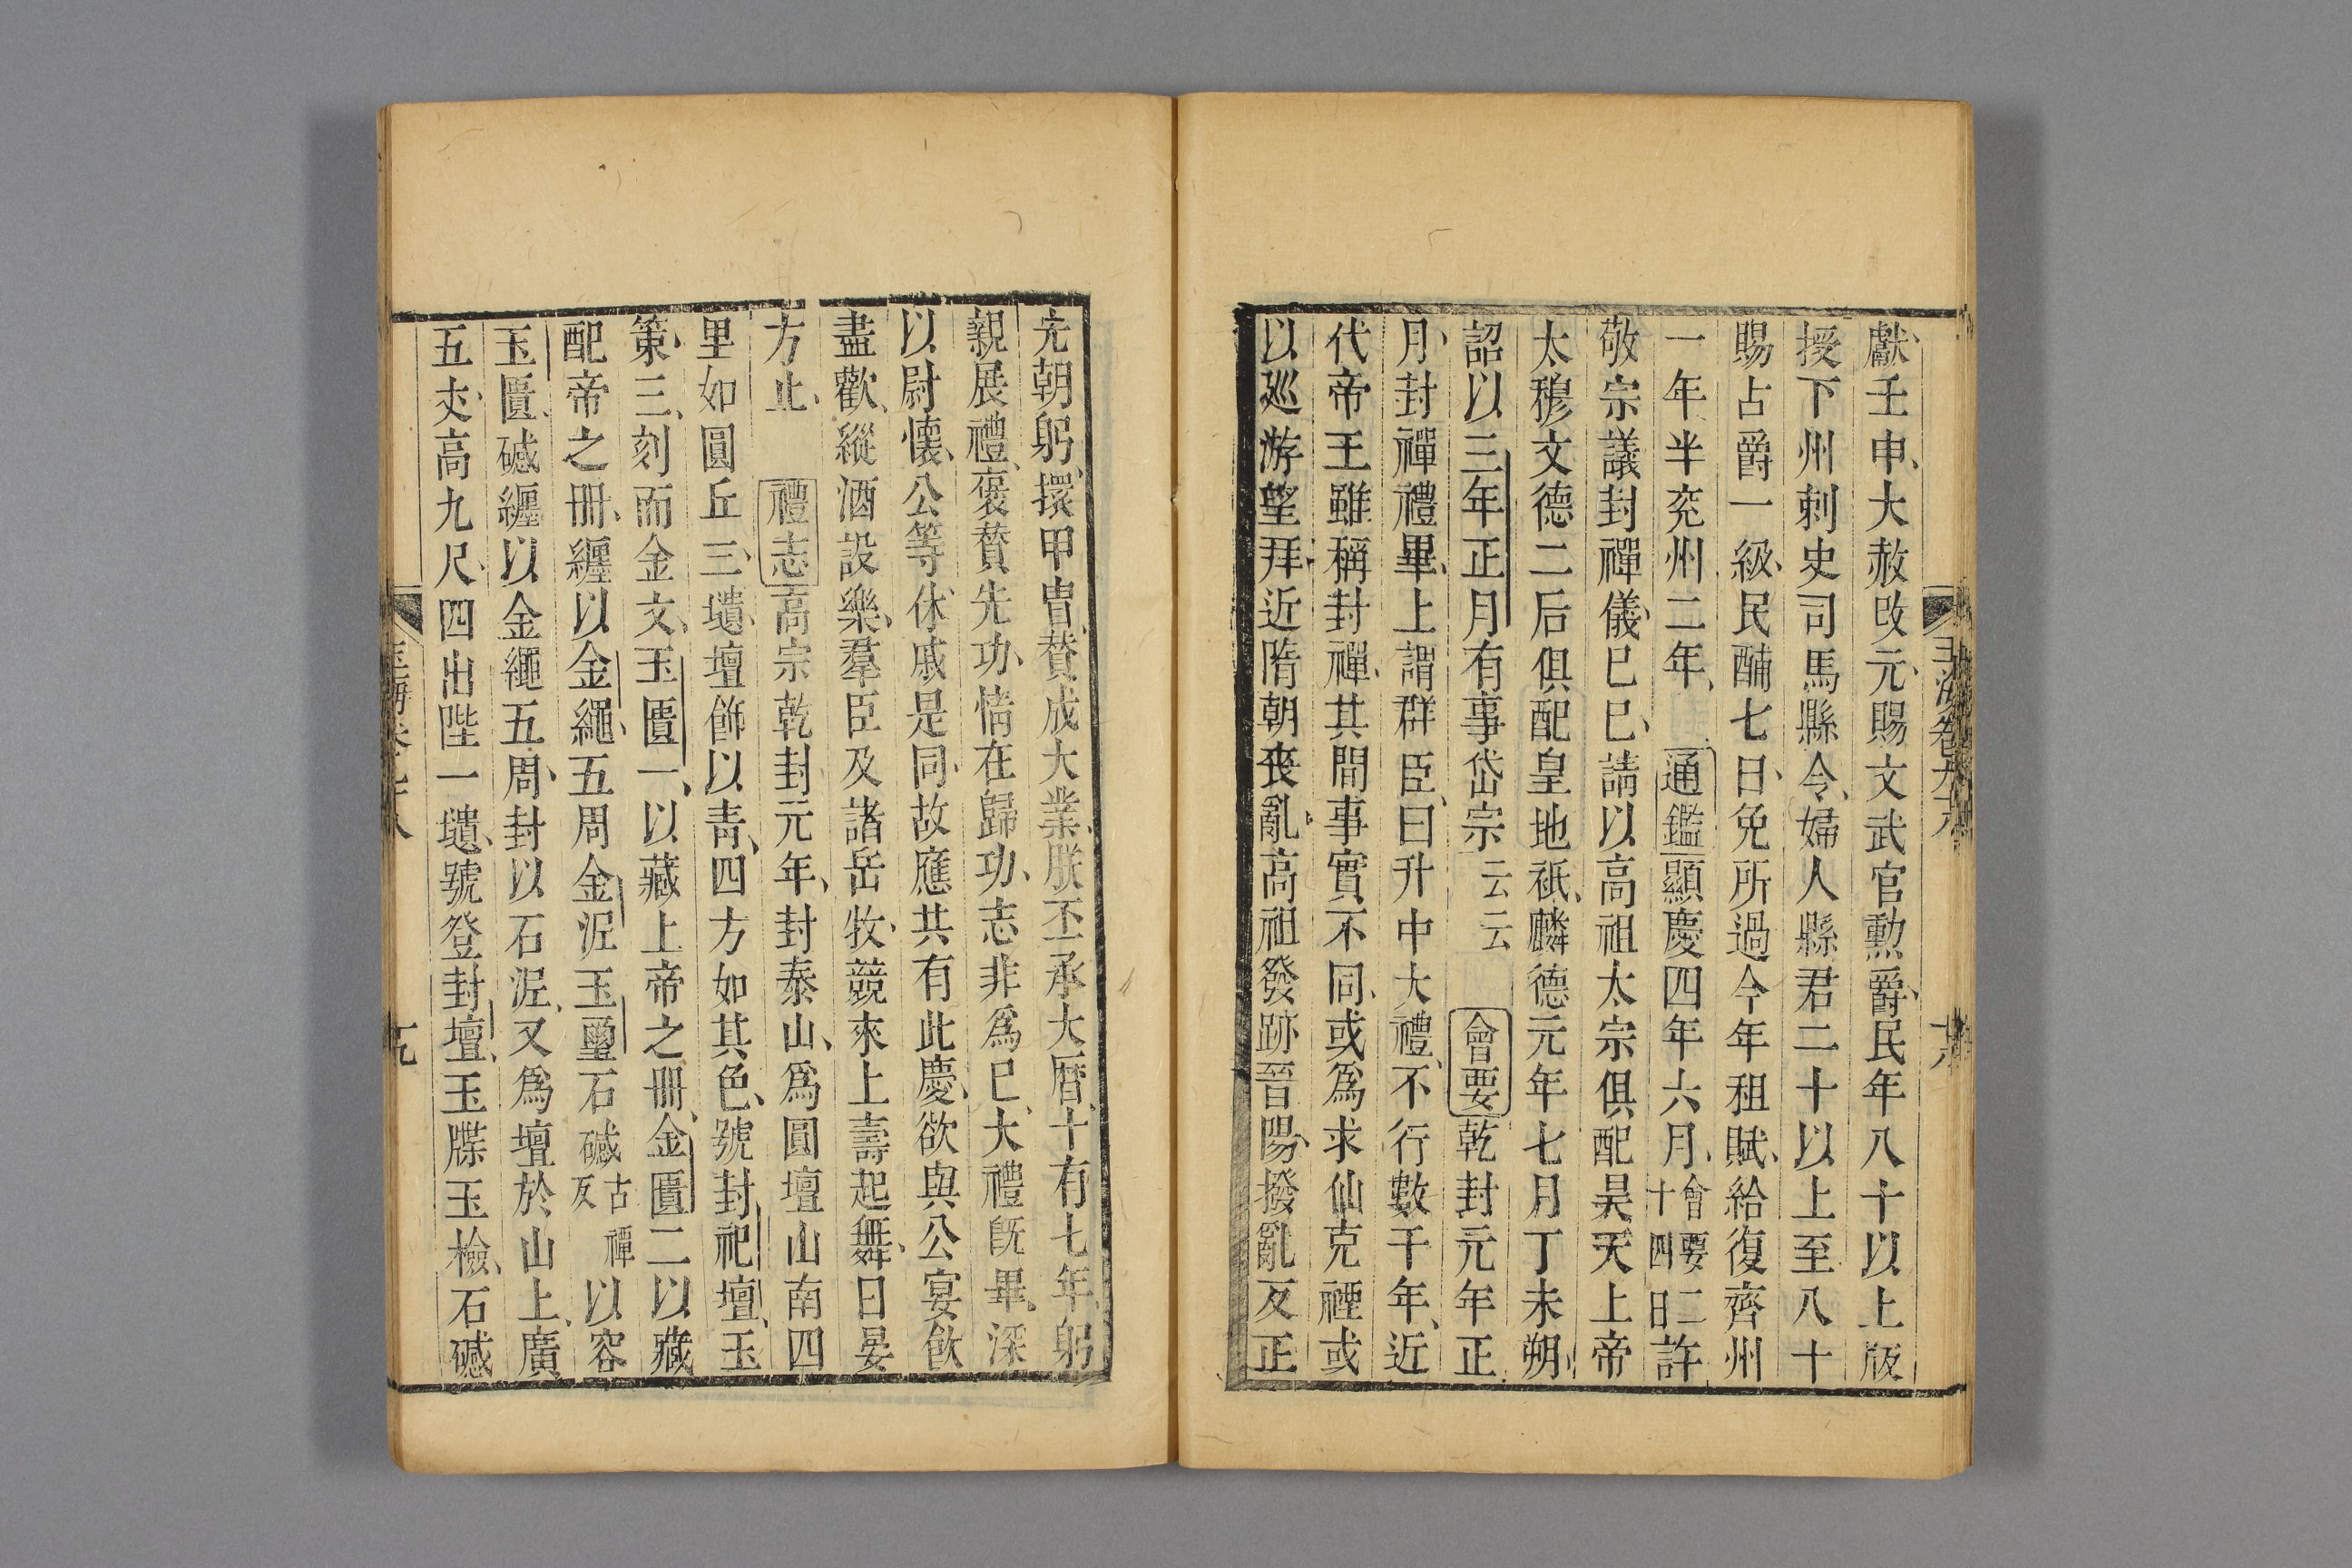 獻壬申大赦改元賜文武官勲爵民年八十以上版
授下州刺史司馬縣令婦人縣君二十以上至八十
賜占爵一級民酺七日免所過今年租賦給復齊州
一年半兖州二年 通鑑顯慶四年六月會要二十四日許
敬宗議封禪儀已巳請以高祖太宗俱配昊天上帝
太穆文德二后俱配皇地祇麟德元年七月丁未朔
詔以三年正月有事岱宗云云 會要乾封元年正
月封禪禮畢上謂群臣曰升中大禮不行數千年近
代帝王雖稱封禪其間事實不同或爲求仙克禋或
以廵游望拜近隋朝喪亂高祖發跡晉陽撥亂反正
先朝躬擐甲胄賛成大業朕丕承大曆十有七年躬
親展禮襃賛先功情在歸功志非爲已大禮旣畢深
以尉懐公等休戚是同故應共有此慶欲與公宴飲
盡歡縱酒設樂羣臣及諸岳牧競來上壽起舞日晏
方止 禮志高宗乾封元年封泰山爲圓壇山南四
里如圓丘三壝壇飾以靑四方如其色號封祀壇玉
策三刻而金文玉匱一以藏上帝之冊金匱二以藏
配帝之冊纒以金繩五周金泥玉璽石䃭古禪反以容
玉匱䃭纒以金繩五周封以石泥又爲壇於山上廣
五丈高九尺四出陛一壝號登封壇玉牒玉檢石䃭